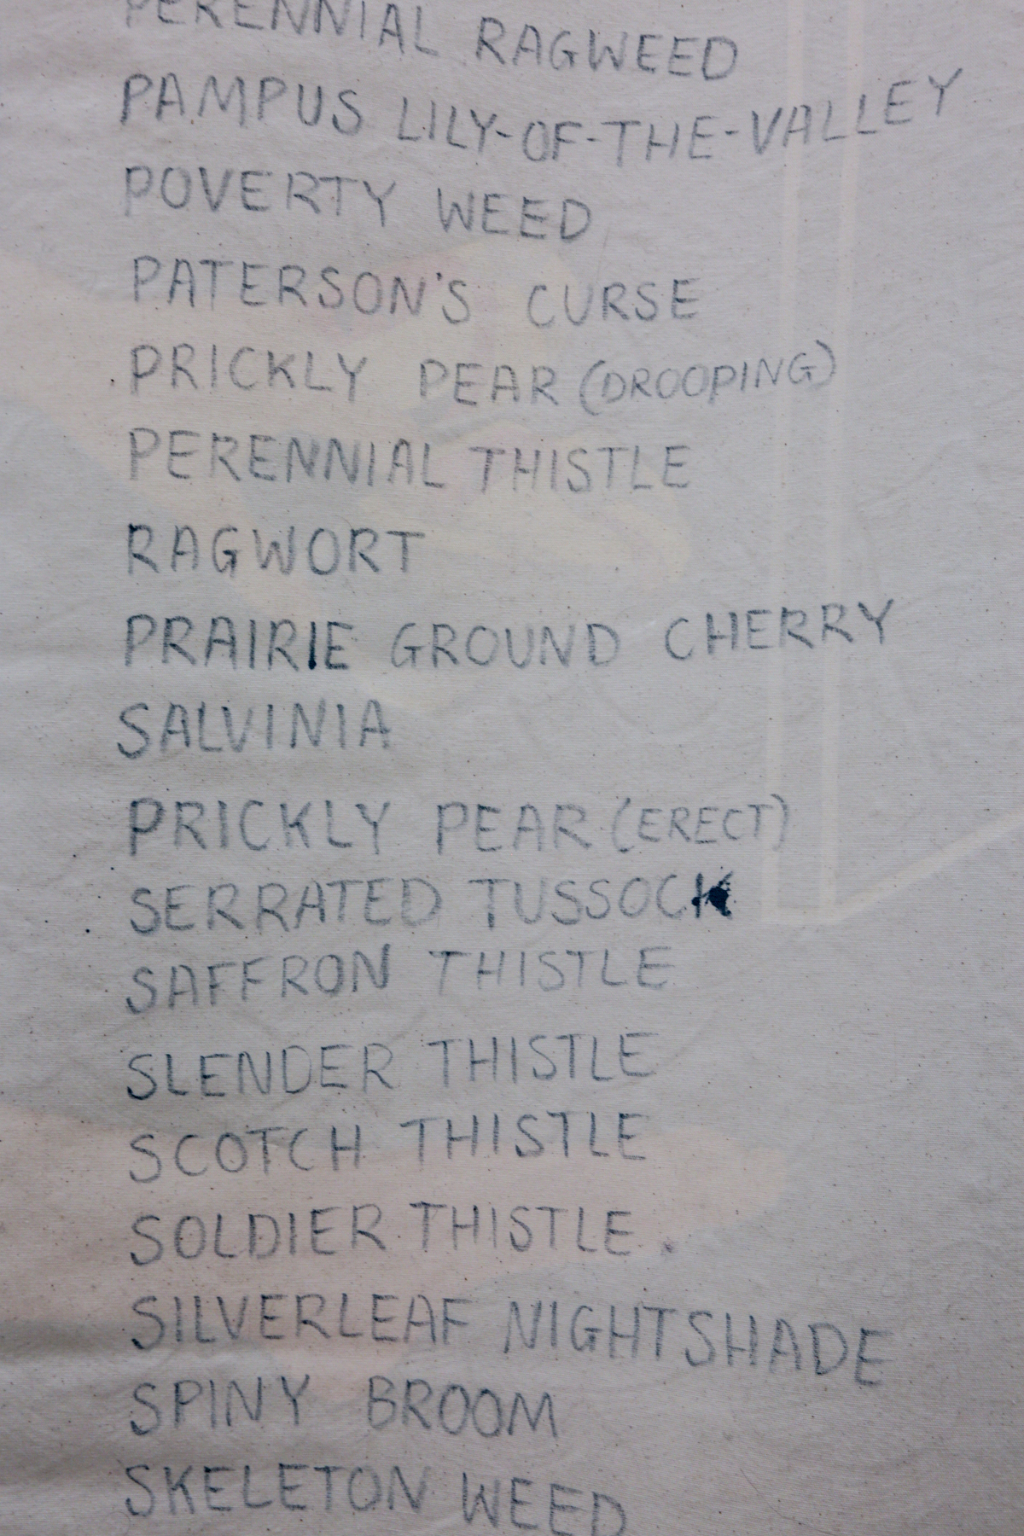 PERENNIAL RAGWEED
PAMPUS LILY-OF-THE-VALLEY
POVERTY WEED
PATERSON'S CURSE
PRICKLY PEAR (DROOPING)
PERENNIAL THISTLE
RAGWORT
PRAIRIE GROUND CHERRY
SALVINIA
PRICKLY PEAR (ERECT)
SERRATED TUSSOCK
SAFFRON THISTLE
SLENDER THISTLE
SCOTCH THISTLE
SOLDIER THISTLE.
SILVERLEAF NIGHTSHADE
SPINY BROOM
SKELETON WEED